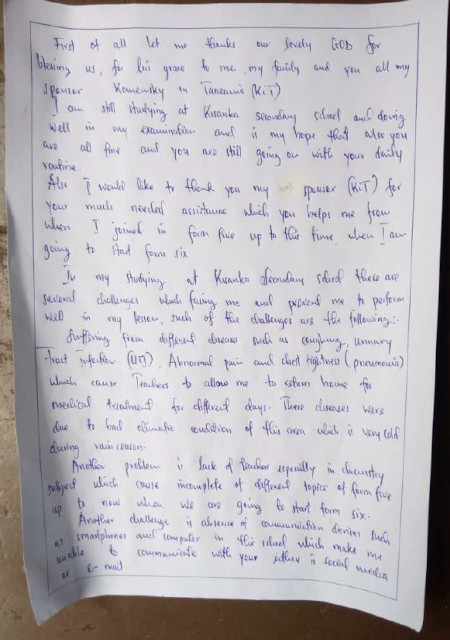 First of all let me thanks our lovely GOD for
blessing us, for his grace to me, my family and you all my
sponser Komewsky in Tanzania (KiT)
I am still studying at Kisanka secondary school and doing
well in my examination and is my hope that also you
are all fine and you are still going on with your daily
routine.
Also I would like to thank you my sponser (KiT) for
your much needed assistance which you helps me from
when I joined in form five up to this time, when I am
going to start form six
In my studying at Kisanka Secondary school there are
several challenges which facing me and prevent me to perform
well in my lesson, such of the challenges are the following:-
Suffering from different disease such as coughing, urinary
Tract infection (UTI), Abnormal pain and chest tightness (pneumonia)
which cause Teachers to allow me to return home for
medical treatment for different days. These diseases were
due to bad climatic condition of this area which is very cold
during rain season.
Another problem is lack of Teacher especially in chemistry
subject which cause incomplete of different topics of form five
up to now when we are going to start form six.
Another challenge is absence of communication devices such
as smartphones and computer in this school which make me
unable to communicate with your either in social media
or e-mail